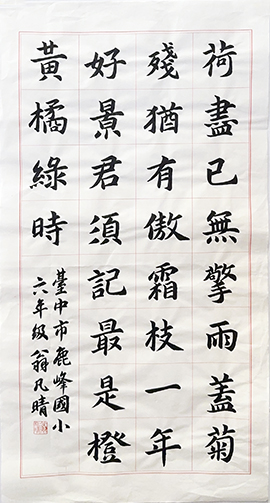 荷盡已無擎雨蓋菊
殘猶有傲霜枝一年
好景君須記最是橙
黃橘綠時
臺中市鹿峰國小
六年級翁凡晴